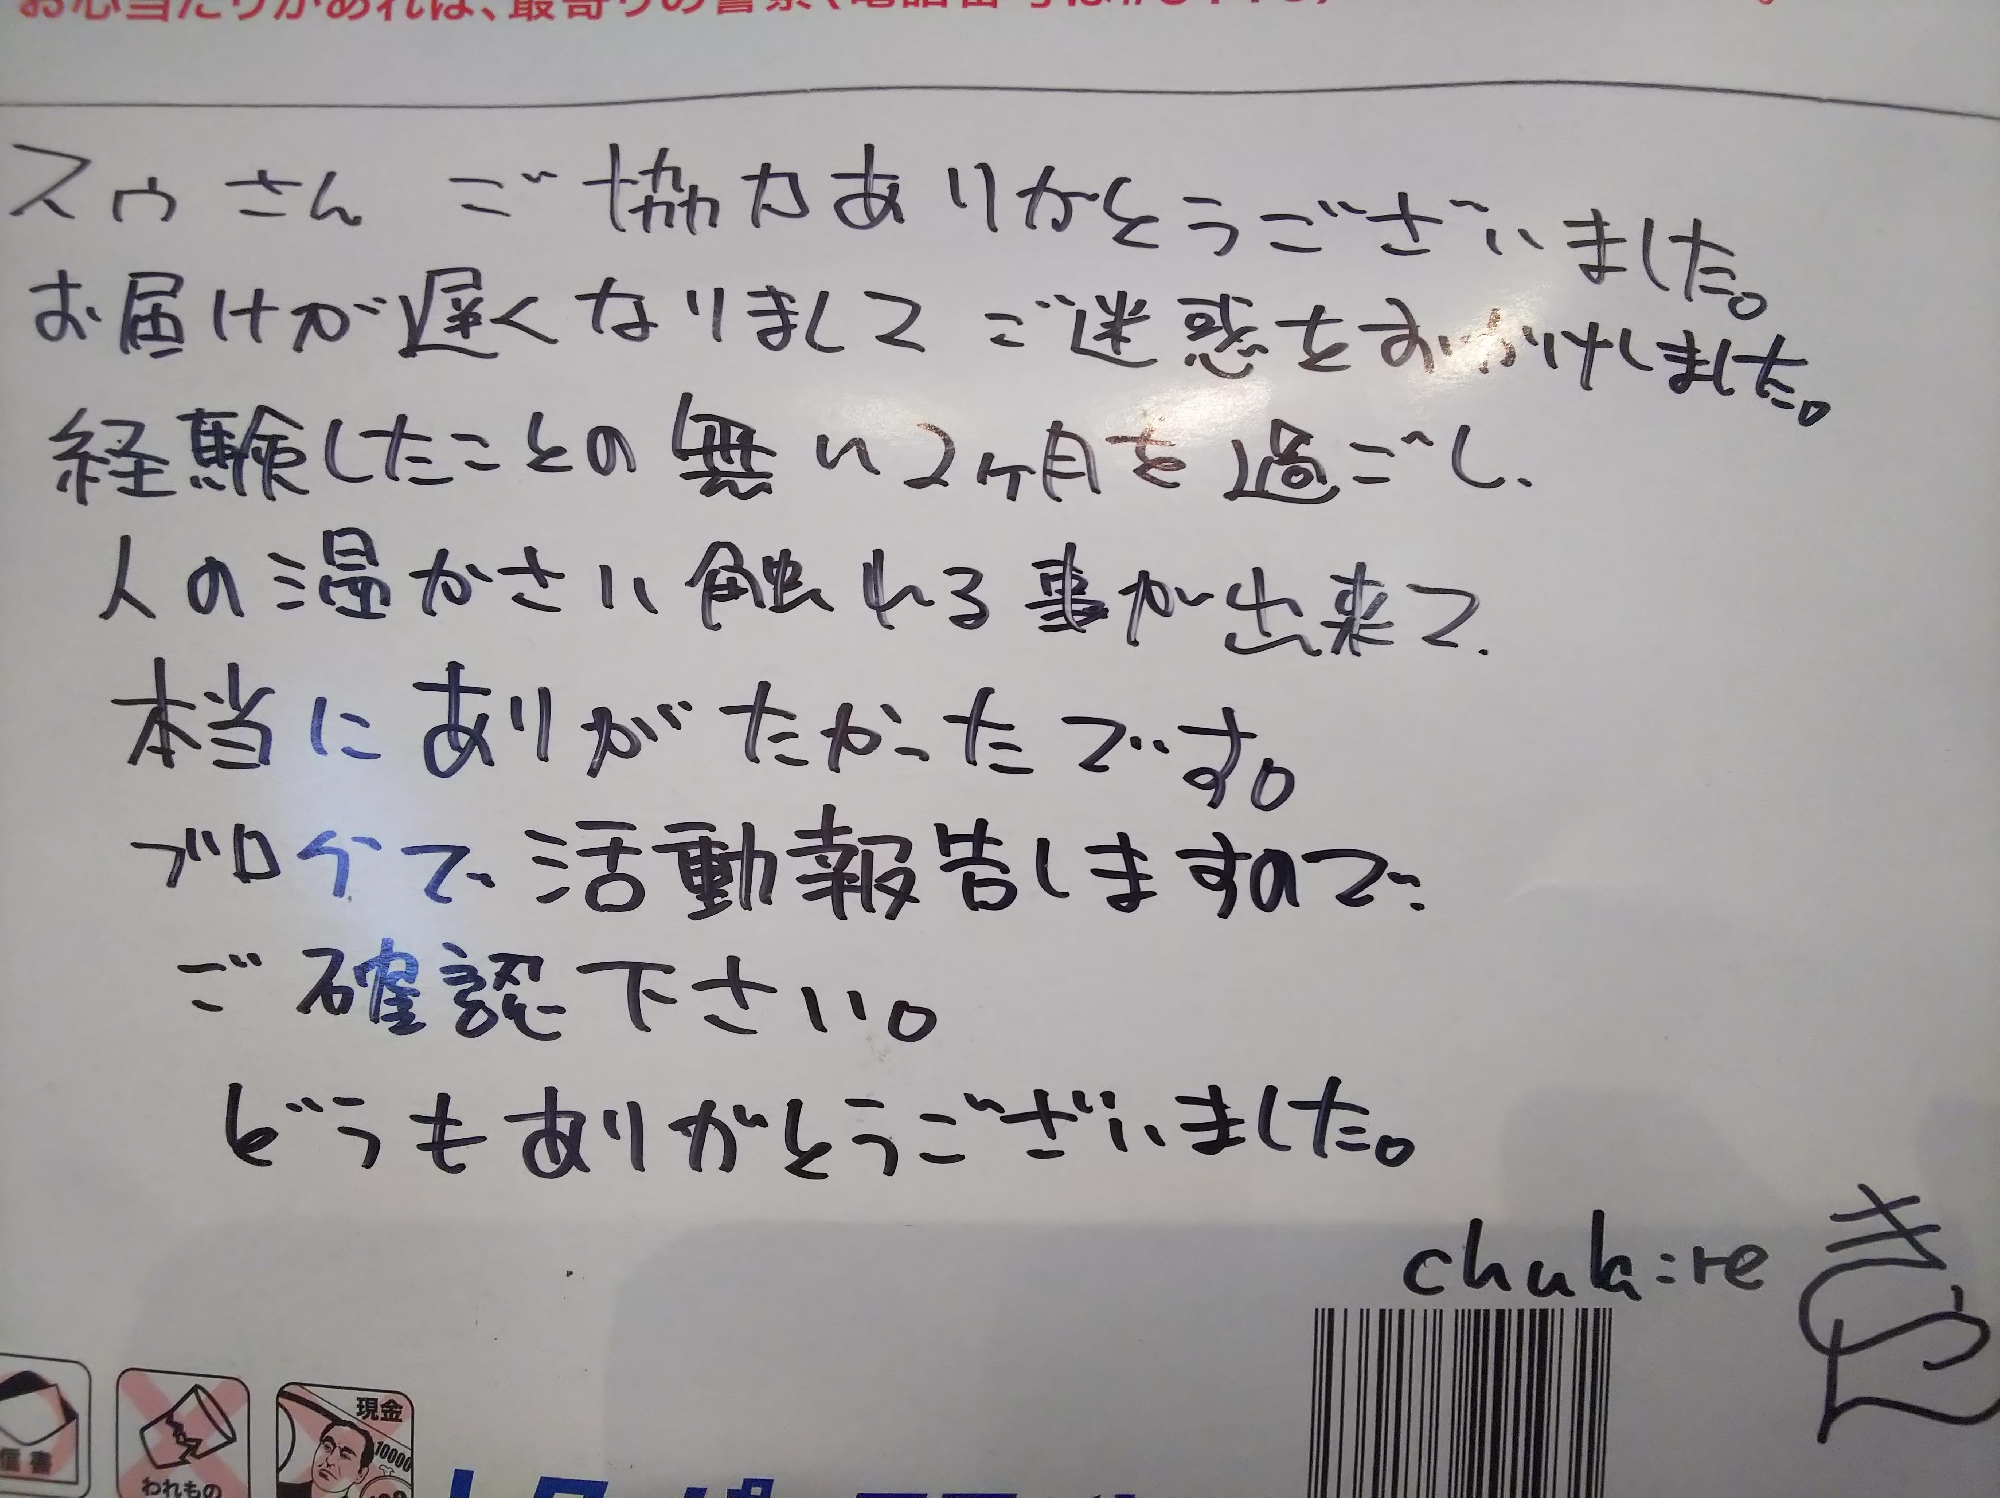 お心当たりがあれば、最寄りの警察(電話番号は#9110)
スゥさん ご協力ありがとうございました。
お届けが遅くなりまして ご迷惑をおかけしました。
経験したことの無い2ヶ月を過ごし、
人の温かさに触れる事が出来て、
本当にありがたかったです。
ブログで活動報告しますので、
ご確認下さい。
どうもありがとうございました。
chula:re
信書
われもの
現金
10000